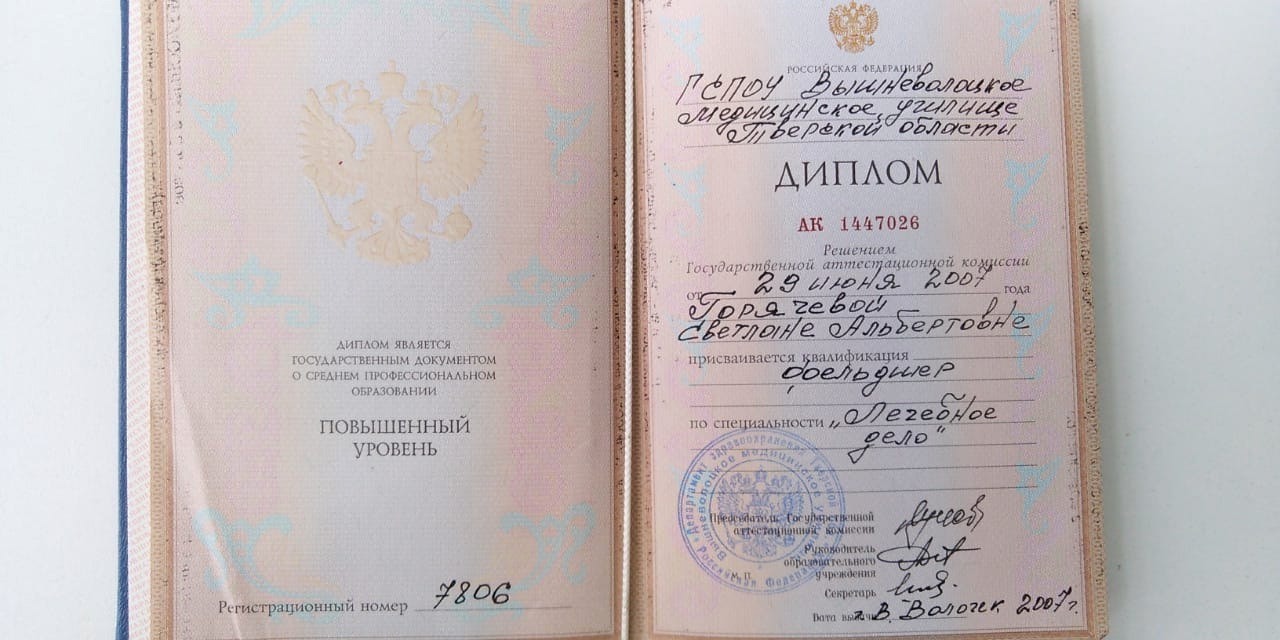 ДИПЛОМ ЯВЛЯЕТСЯ
ГОСУДАРСТВЕННЫМ ДОКУМЕНТОМ
О СРЕДНЕМ ПРОФЕССИОНАЛЬНОМ
ОБРАЗОВАНИИ
ПОВЫШЕННЫЙ
УРОВЕНЬ
Регистрационный номер 7806
РОССИЙСКАЯ ФЕДЕРАЦИЯ
ГСПОУ Вышневолоцкое
медицинское училище
Тверской области
ДИПЛОМ
АК 1447026
Решением
Государственной аттестационной комиссии
от 29 июня 2007 года
Горячевой
Светлане Альбертовне
присваивается квалификация
фельдшер
по специальности „Лечебное
дело"
Председатель Государственной
аттестационной комиссии
Руководитель
образовательного
учреждения
М.П.
Секретарь
Дата выдачи г. В. Волочек 2007г.
Департамент здравоохранения Тверской
Вышневолоцкое медицинское училище
Российская Федерация